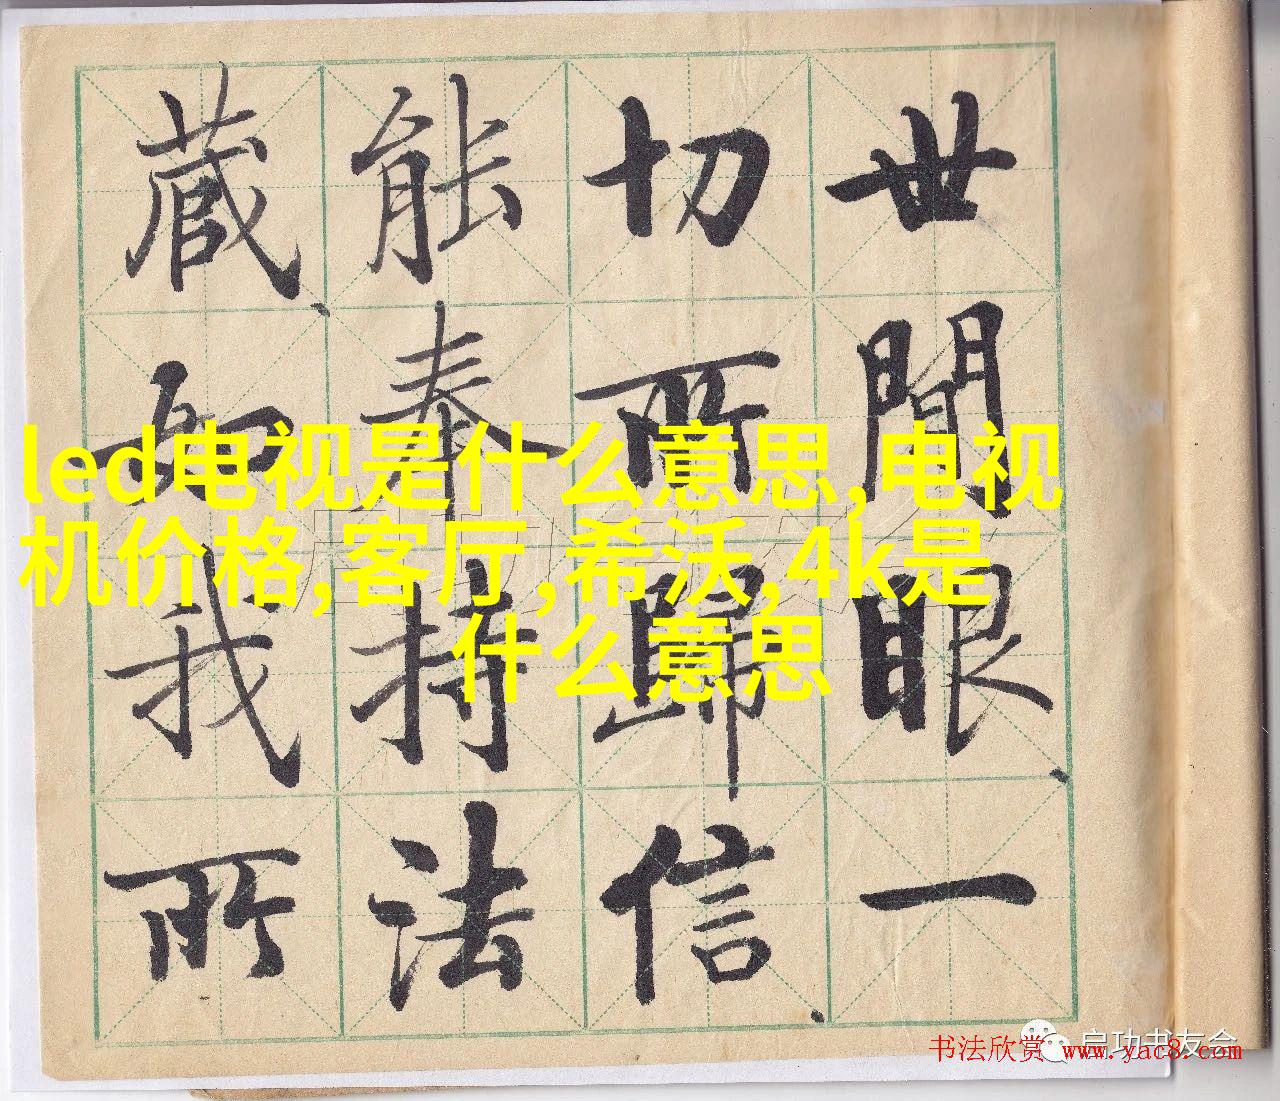 世間眼一
切所歸信
能奉持法
藏如我所
led电视是什么意思,电视
机价格,客厅,希沃,4k是
什么意思
启功书友会
书法欣赏 www.yac8.com